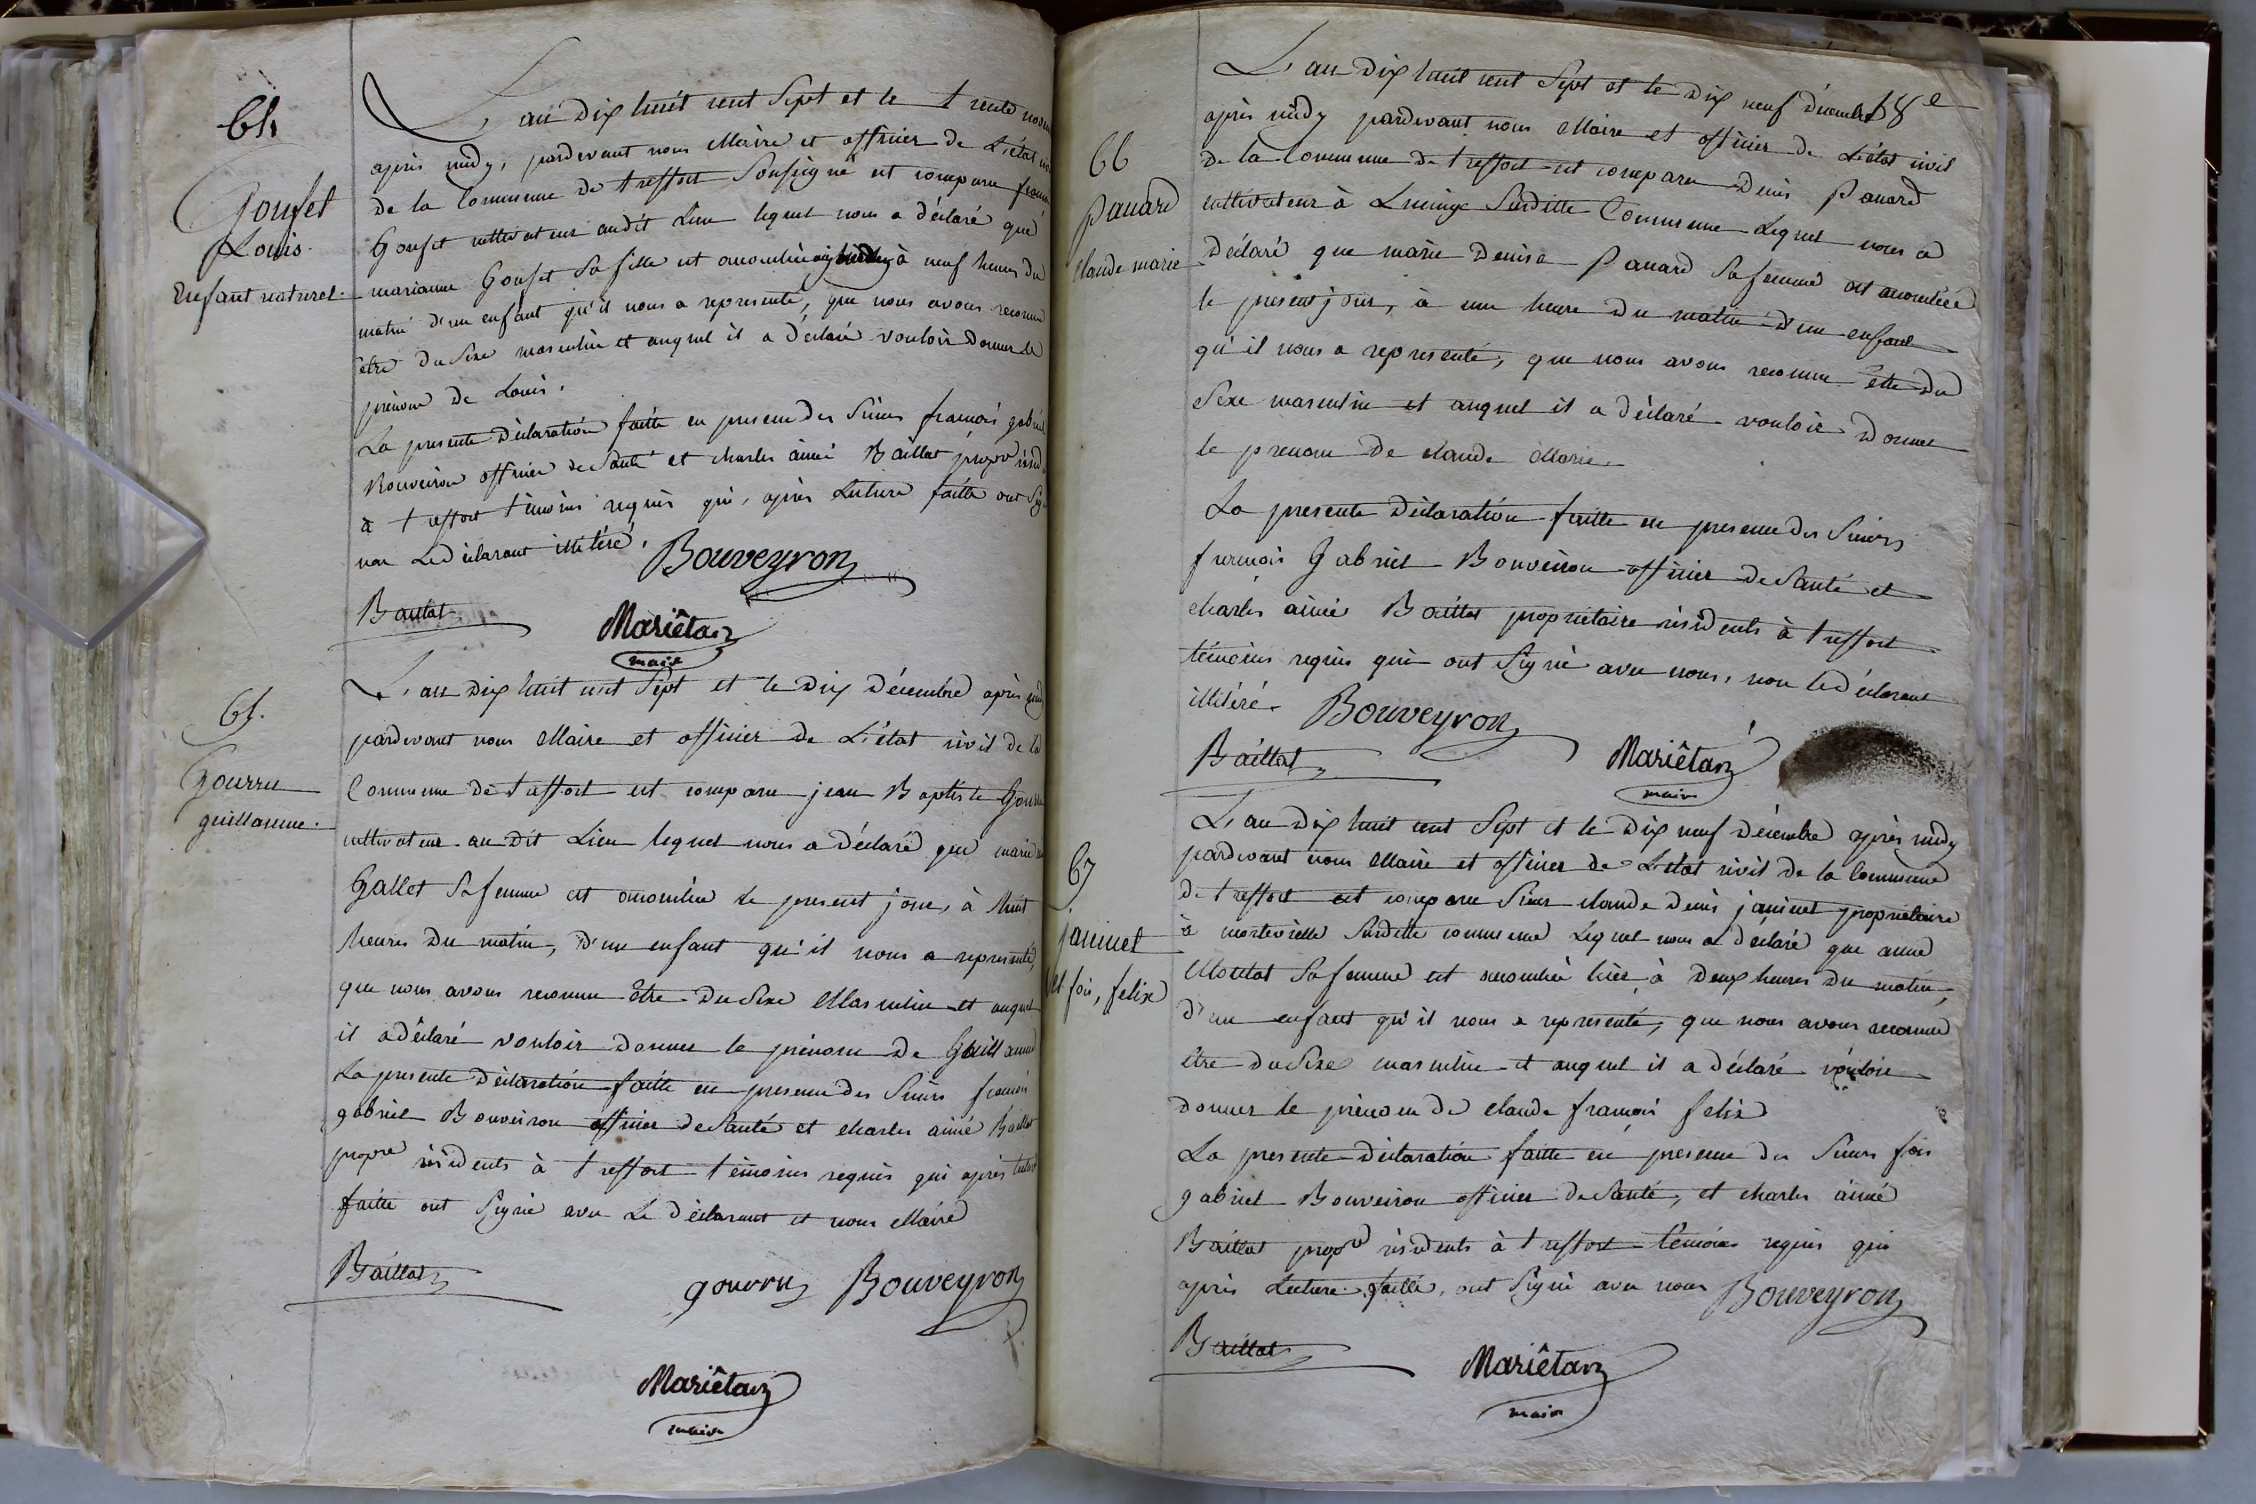 64
Gouset
Louis.
Enfant naturel.
L'an dix huit cent sept et le trente
après midy, pardevant nous Maire et officier de L'état
de la Commune de treffort soussigné est comparu
Gouset cultivateur audit Lieu lequel nous a déclaré que
marianne Gouset sa fille est accouchée à neuf heures du
matin d'un enfant qu'il nous a representé, que nous avons reconnu
être du sexe masculin et auquel il a déclaré vouloir donner le
prenom de Louis.
La presente déclaration faitte en presence des sieurs francois gabriel
Bouveiron officier de santé et charles aimé Baillat propre
à treffort témoins requis qui, après lecture faitte ont
non Le déclarant illitéré.
Bouveyron
Baillat
Mariêtan
maire
65.
Gourru
guillaume.
L'an dix huit cent sept et le dix décembre après midy
pardevant nous Maire et officier de L'état civil de la
Commune de treffort est comparu jean Baptiste Gourru
cultivateur au dit Lieu lequel nous a déclaré que marie
Gallet sa femme est accouchée le present jour, à huit
heures du matin, d'un enfant qu'il nous a representé,
que nous avons reconnu être du sexe Masculin et auquel
il a déclaré vouloir donner le prénom de Guillaume
La presente déclaration faitte en presence des sieurs francois
gabriel Bouveiron officier de santé et charles aimé Baillat
propre résidents à treffort témoins requis qui après lecture
faitte ont signé avec Le déclarant et nous Maire
Baillat
gourru
Bouveyron
Mariêtan
maire
18e
66
Panard
claude marie
L'an dix huit cent sept et le dix neuf décembre
après midy pardevant nous Maire et officier de L'état civil
de la Commune de treffort est comparu denis Panard
cultivateur à Lucinge surditte Commune Lequel nous a
déclaré que marie denise Panard sa femme est accouchée
le present jour, à une heure du matin d'un enfant
qu'il nous a representé, que nous avons reconnu être du
sexe masculin et auquel il a déclaré vouloir donner
le prenom de claude Marie.
La presente déclaration faitte en presence des sieurs
francois Gabriel Bouveiron officier de santé et
charles aimé Baillat propriétaire résidents à treffort
témoins requis qui ont signé avec nous, non le déclarant
illitéré.
Bouveyron
Baillat
Mariêtan
maire
67
janinet
fois, felix
L'an dix huit cent sept et le dix neuf décembre après midy
pardevant nous Maire et officier de L'état civil de la Commune
de treffort est comparu sieur claude denis janinet propriétaire
à montevielle surditte commune Lequel nous a déclaré que anne
Moutat sa femme est accouchée hier à deux heures du matin,
d'un enfant qu'il nous a representé, que nous avons reconnu
être du sexe masculin et auquel il a déclaré vouloir
donner le prénom de claude francois felix
La presente déclaration faitte en presence des sieurs fois
gabriel Bouveiron officier de santé, et charles aimé
Baillat propre résidents à treffort témoins requis qui
après Lecture faitte, ont signé avec nous
Bouveyron
Baillat
Mariêtan
maire